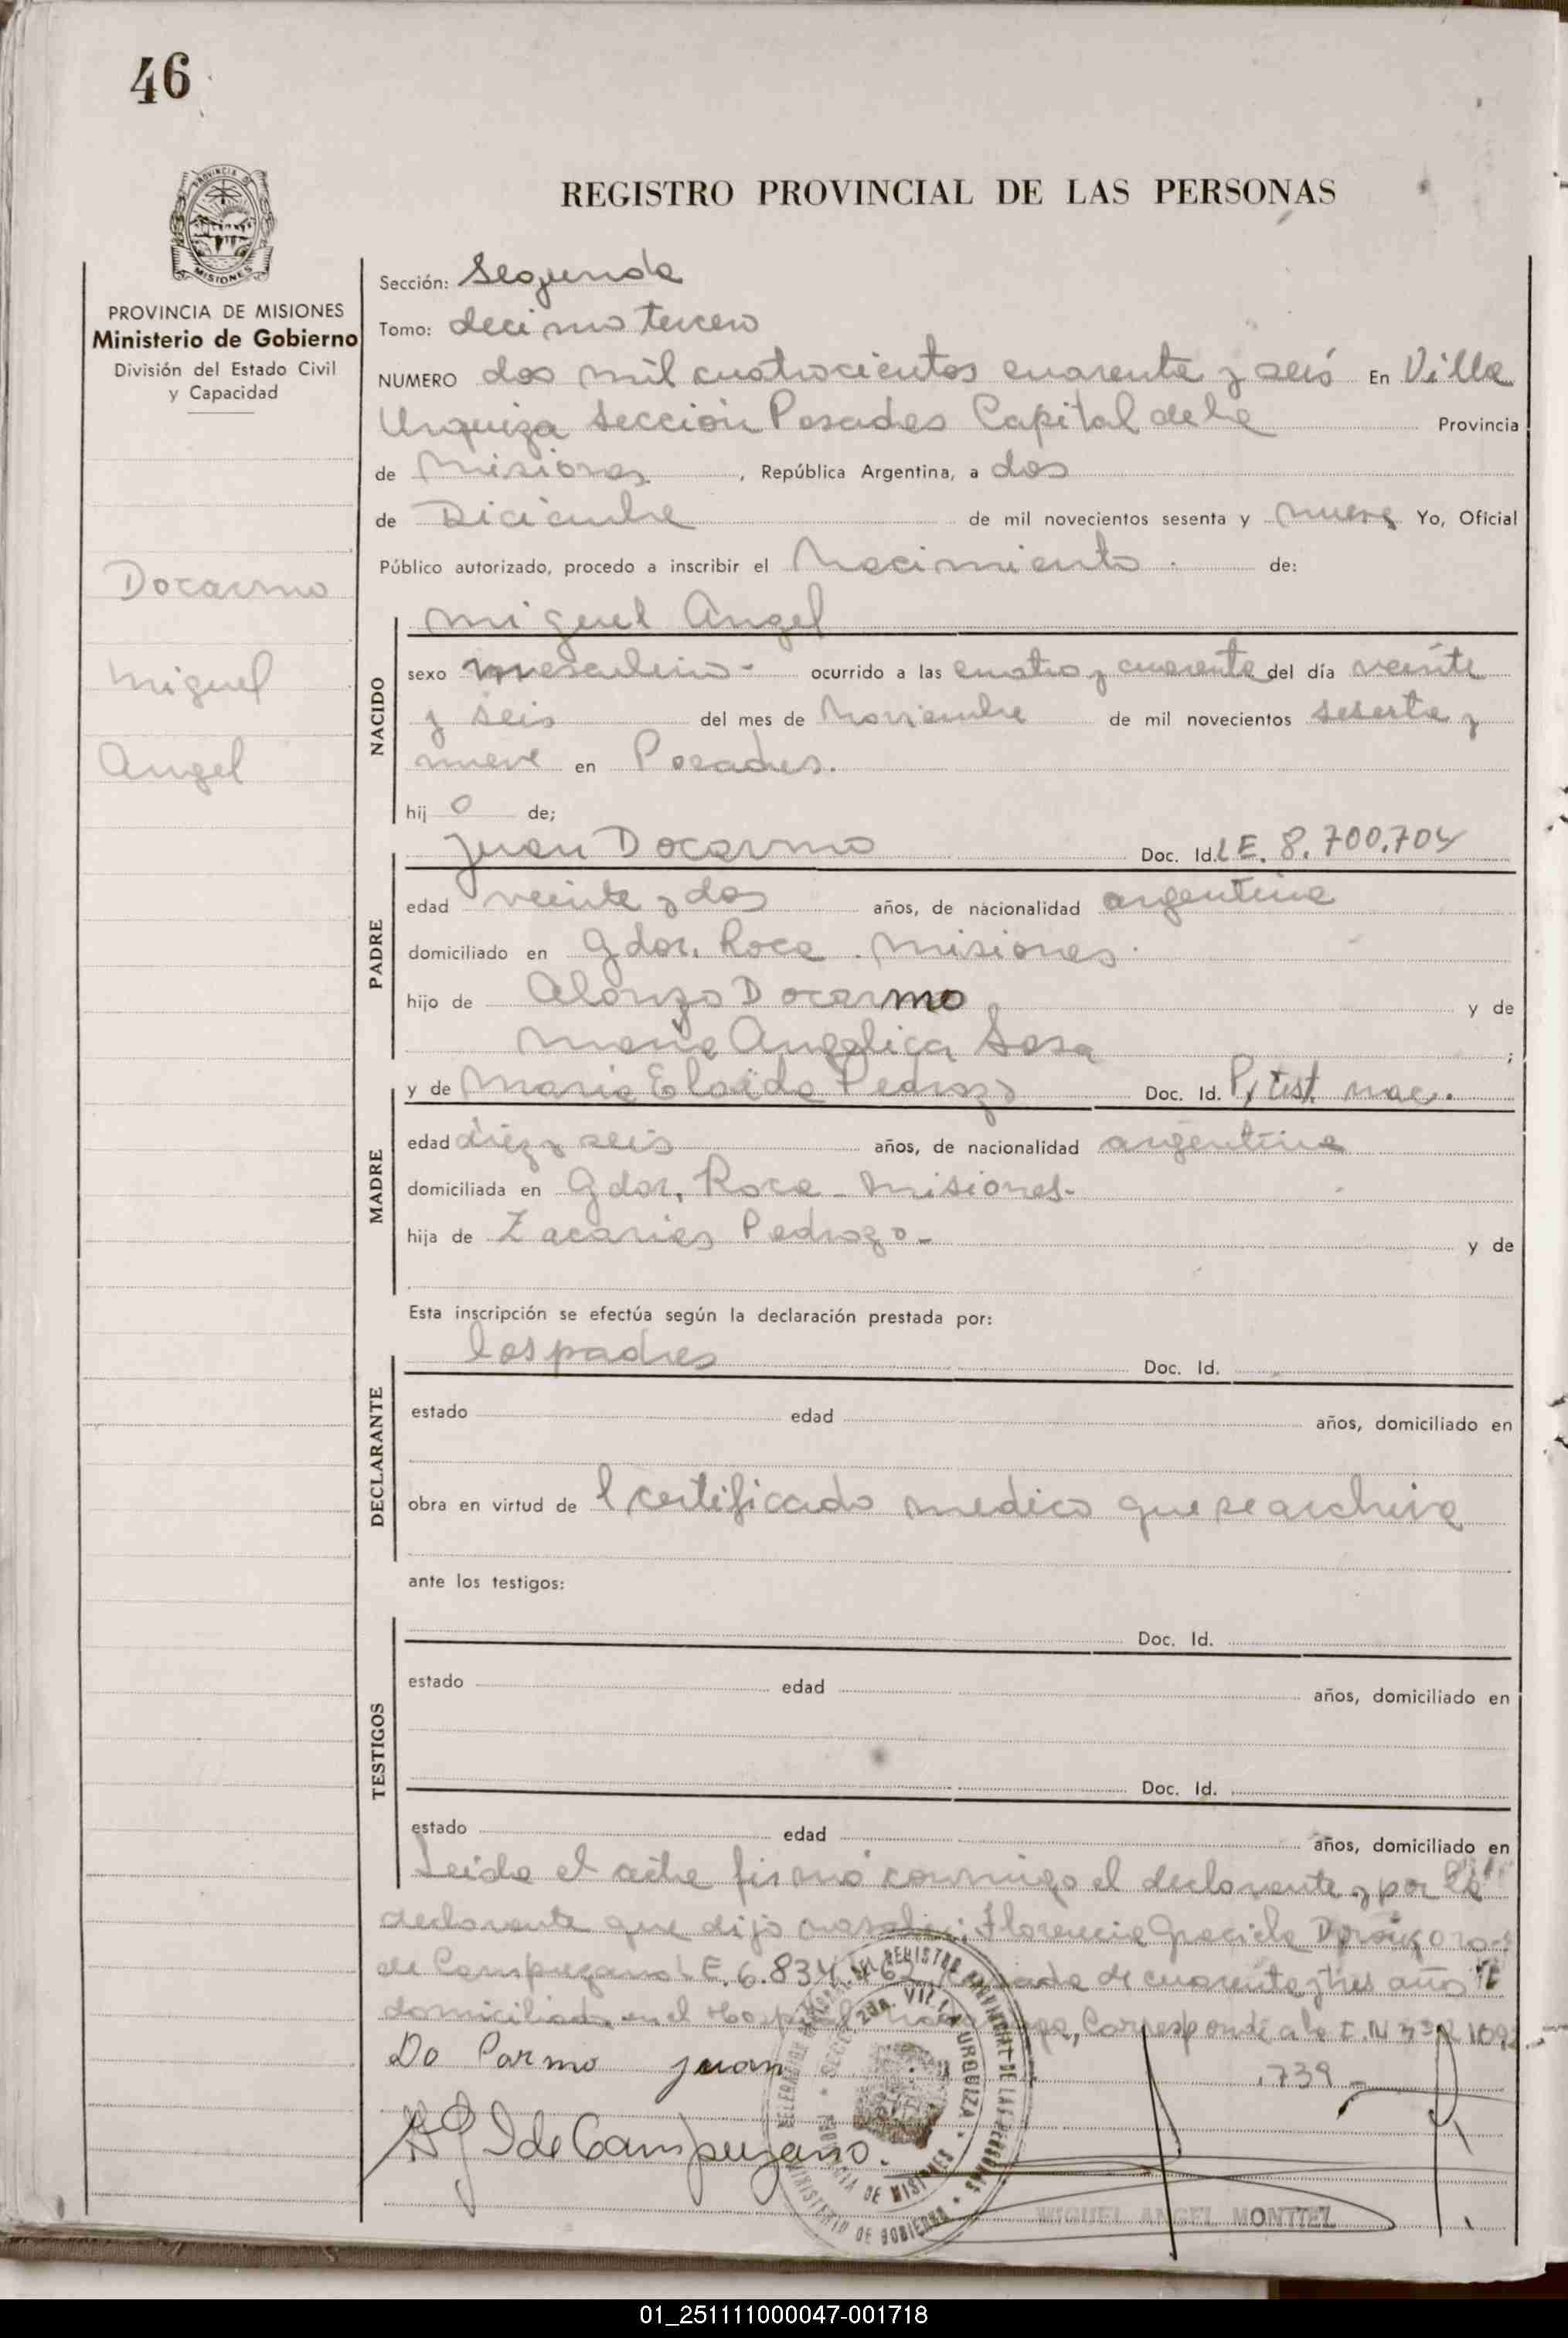 46
REGISTRO PROVINCIAL DE LAS PERSONAS
PROVINCIA DE MISIONES
Ministerio de Gobierno
División del Estado Civil
y Capacidad
Docarmo
Miguel
Angel
Sección: Segunda
Tomo: decimo tercero
NUMERO dos mil cuatrocientos cuarenta y seis En Villa
Urquiza Sección Posadas Capital de la Provincia
de Misiones, República Argentina, a dos
de Diciembre de mil novecientos sesenta y nueve Yo, Oficial
Público autorizado, procedo a inscribir el Nacimiento de:
NACIDO
Miguel Angel
sexo masculino - ocurrido a las cuatro y cuarenta del día veinte
y seis del mes de Noviembre de mil novecientos sesenta y
nueve en Posadas.
hijo de;
PADRE
Juan Docarmo Doc. Id. LE. 8.700.704
edad veinte y dos años, de nacionalidad argentina
domiciliado en Gdor. Roca. Misiones.
hijo de Alonzo Docarmo y de
Maria Angelica Sosa ;
MADRE
y de Maria Elaida Pedrozo Doc. Id. P/ test. nac.
edad diez y seis años, de nacionalidad argentina
domiciliada en Gdor. Roca - Misiones-
hija de Zacarias Pedrozo - y de
Esta inscripción se efectúa según la declaración prestada por:
DECLARANTE
los padres Doc. Id.
estado edad años, domiciliado en
obra en virtud de l certificado medico que se archiva
ante los testigos:
TESTIGOS
Doc. Id.
estado edad años, domiciliado en
Doc. Id.
estado edad años, domiciliado en
Leida el acta firmó conmigo el declarante y por la
declarante que dijo no saber: Florencia Graciela
de Campuzano L.E. 6.834.462, casada de cuarenta y tres años
domiciliada en el Hospital Corresponde a la
.739 -
Do Carmo Juan
de Campuzano.
REGISTRO PROVINCIAL DE LAS PERSONAS
MINISTERIO DE GOBIERNO
2da. VILLA URQUIZA
PROVINCIA DE MISIONES
MIGUEL ANGEL MONTIEL
01_251111000047-001718